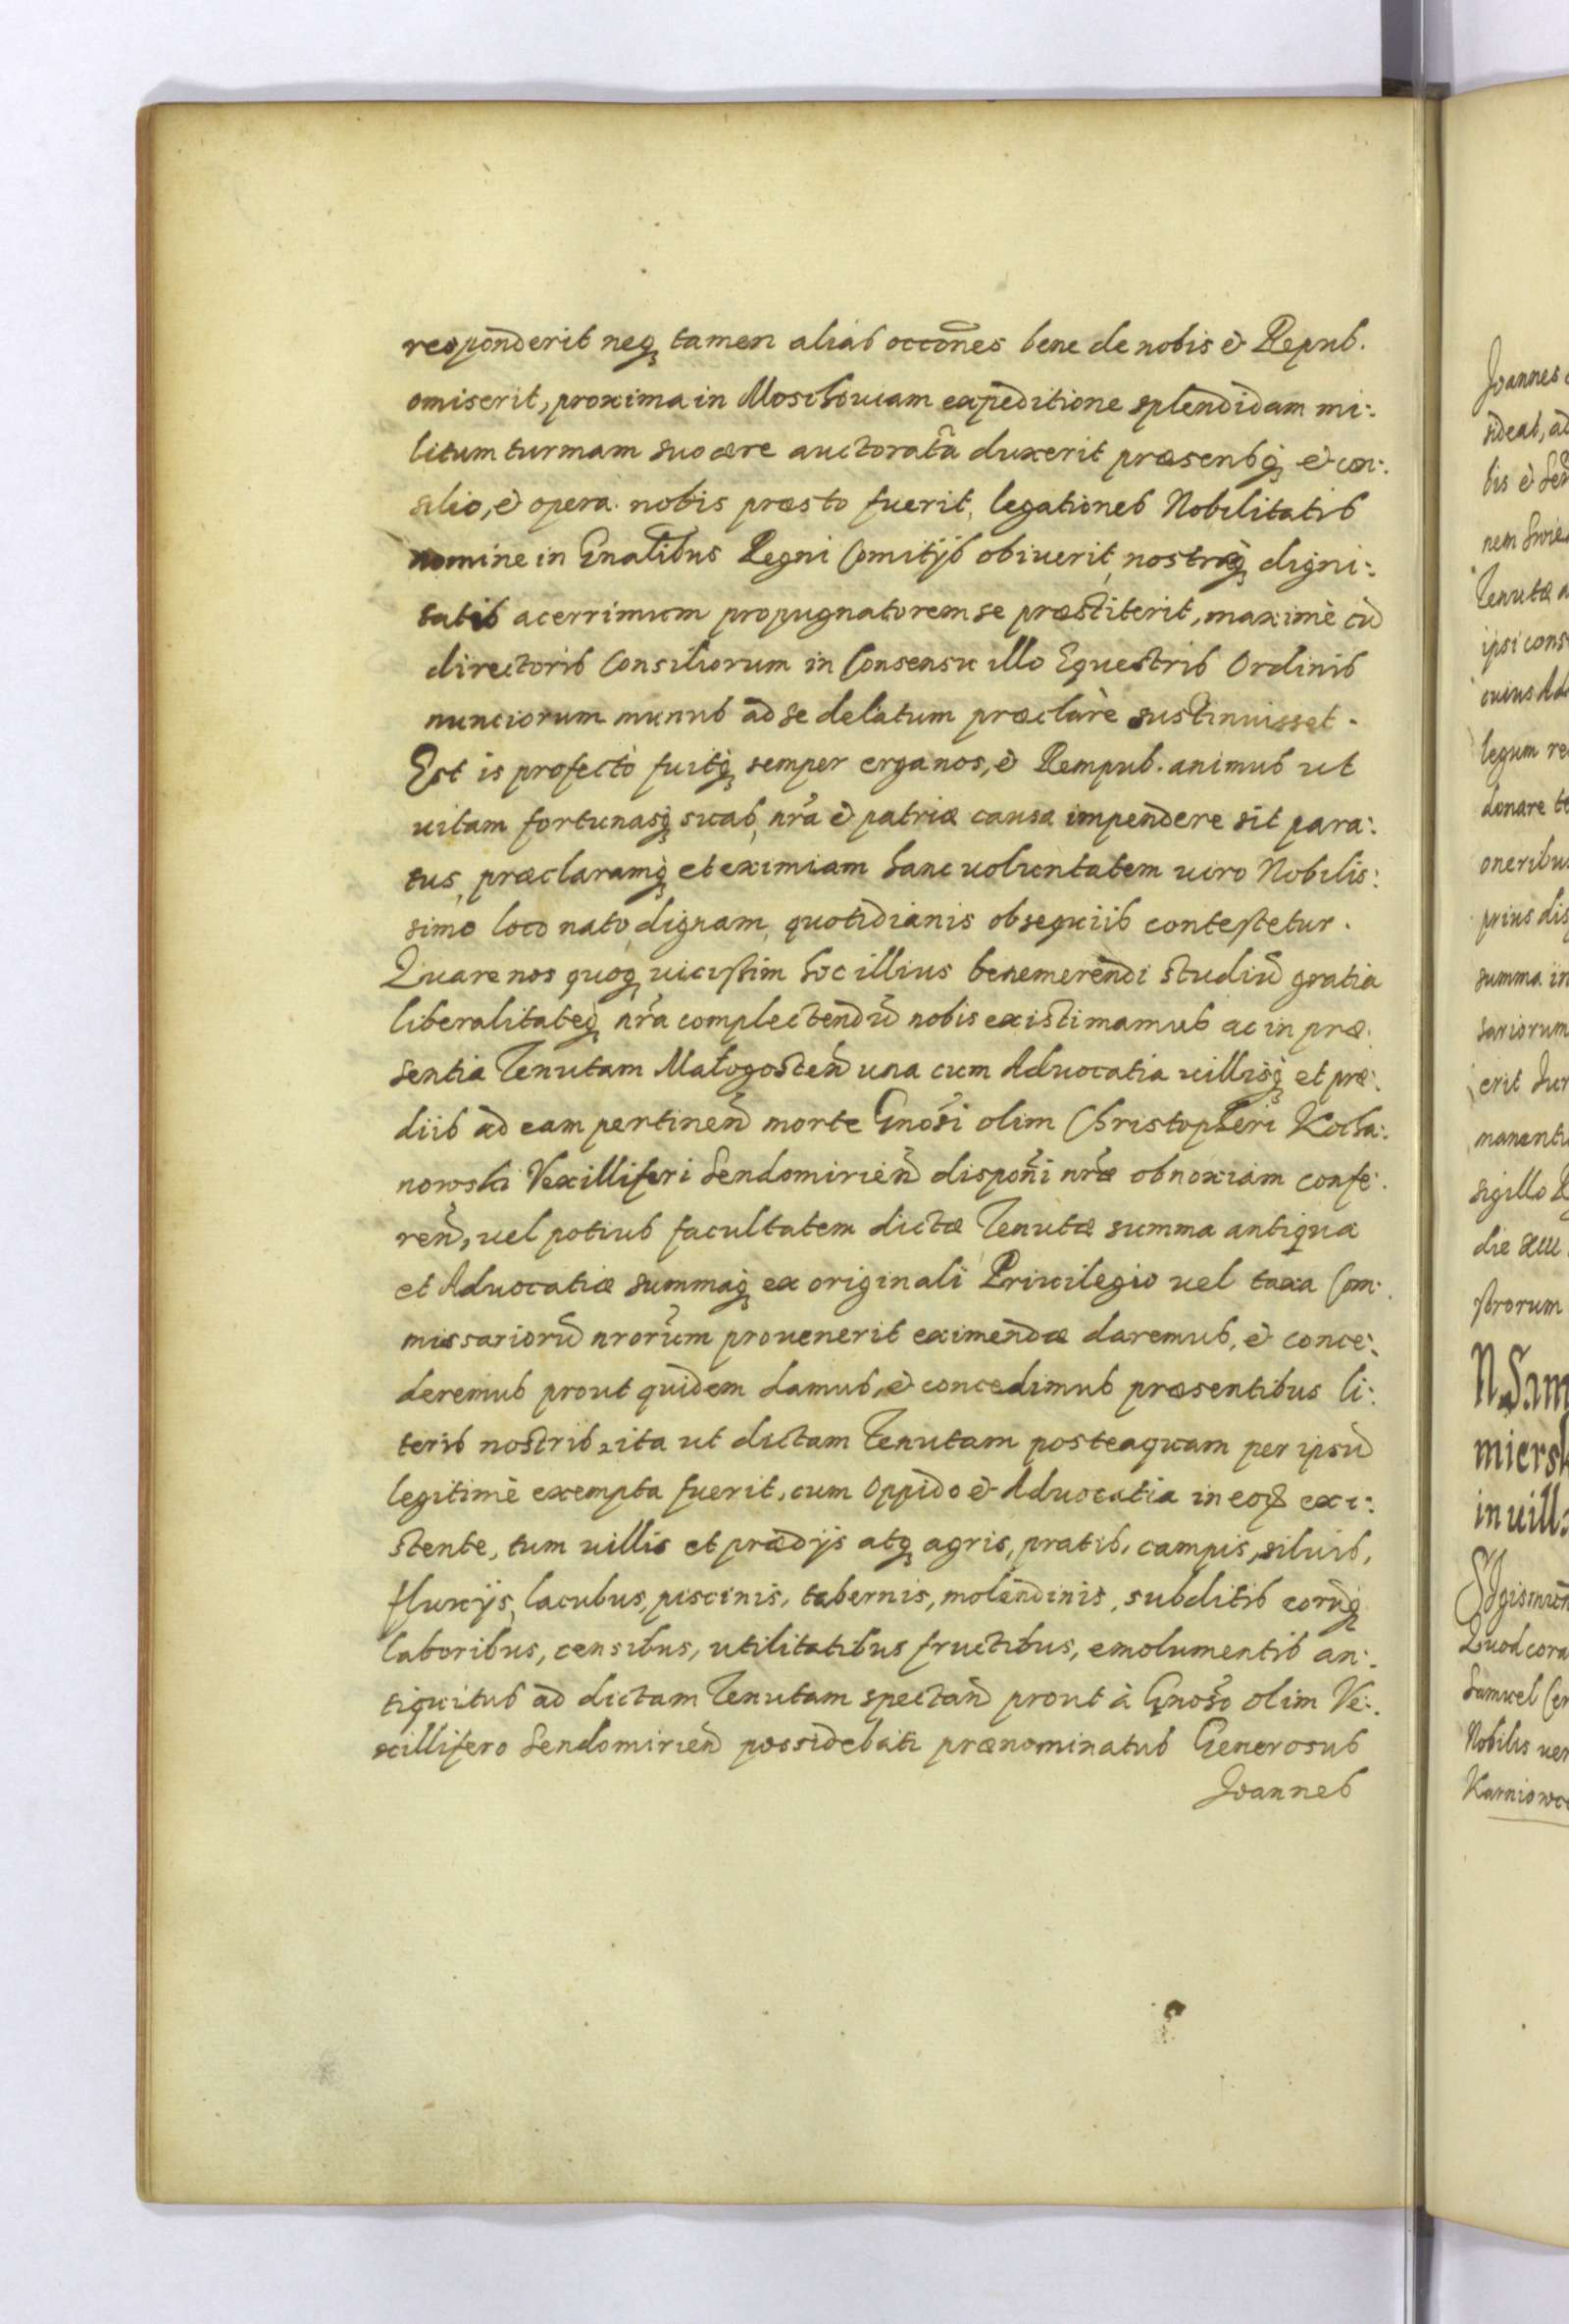 responderit neq₃ tamen alias occōnes bene de nobis & Repub.
omiserit, proxima in Moschouiam expeditione splendidam mi:
litum turmam suo ære auctoratā duxerit præsensq₃ & con:
silio, & opera nobis præsto fuerit, legationes Nobilitatis
nomine in Gnalibus Regni Comitijs obiuerit, nostræq₃ digni:
tatis acerrimum propugnatorem se præstiterit, maximè cū
directoris Consiliorum in Consensu illo Equestris Ordinis
nunciorum munus ad se delatum præclarè sustinuisset.
Est is profectò fuitq₃ semper erga nos, & Rempub. animus ut
uitam fortunasq₃ suas, nrā & patriæ causa impendere sit para:
tus, præclaramq₃ et eximiam hanc uoluntatem uiro Nobilis:
simo loco nato, dignam, quotidianis obsequiis contestetur.
Quare nos quoq₃ uicissim hoc illius benemerendi studiū gratia
liberalitateq₃ nrā complectendū nobis existimamus ac in præ:
sentia Tenutam Małogosten̄ una cum Aduocatia uillisq₃ et præ:
diis ad eam pertinen̄ morte Gnosi olim Christopheri Kocha:
nowski Vexilliferi Sendomirien̄ dispon̄i nræ obnoxiam confe:
ren̄, uel potius facultatem dictæ Tenutæ summa antiqua
et Aduocatiæ summaq₃ ex originali Priuilegio uel taxa Com:
missariorū nrorum prouenerit eximendæ daremus, & conce:
deremus prout quidem damus, & concedimus præsentibus li:
teris nostris, ita ut dictam Tenutam posteaquam per ipsū
legitimè exempta fuerit, cum Oppido & Aduocatia in eoq₃ exi:
stente, tum uillis et prædijs atq₃ agris, pratis, campis, siluis,
fluuijs, lacubus, piscinis, tabernis, molendinis, subditis eorūq₃
laboribus, censibus, utilitatibus fructibus, emolumentis an:
tiquitus ad dictam Tenutam spectan̄ prout à Gnoso olim Ve:
xillifero Sendomirien̄ possidebat prænominatus Generosus
Joannes
Joannes
sideat, ad
bis & 
nem Swie
Tenutæ a
ipsi cons
cuius Ad
legum re
donare te
oneribus
prius dis
summa in
sariorum
erit Jur
manentu
sigillo R
die xiii
strorum
N. Sam
miersk
in uill
Sigismun
Quod cora
Samuel Cer
Nobilis uer
Karniowce